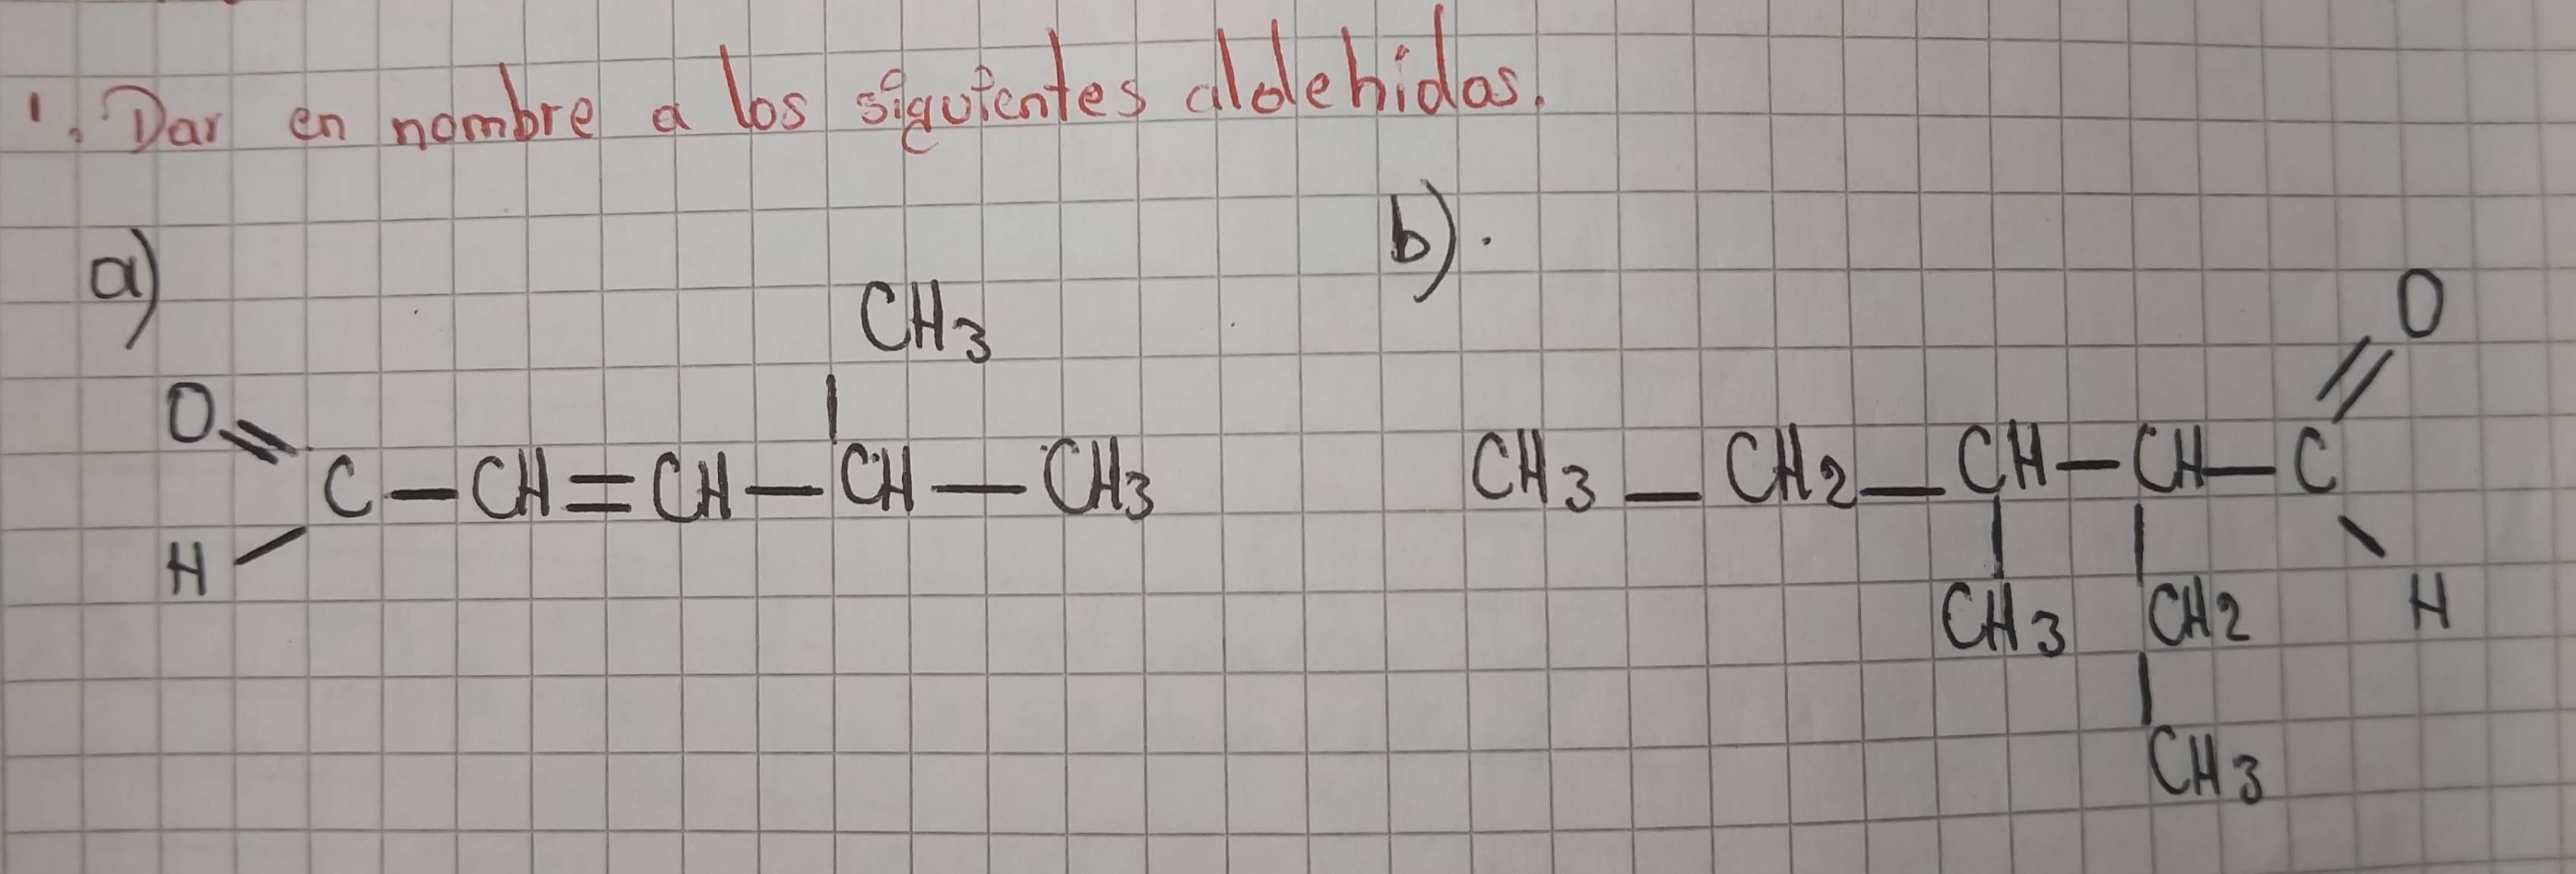 1. Dar en nombre a los siguientes aldehidos.
a)
b).
CH3
O
O
C – CH = CH – CH – CH3
CH3 – CH2 – CH – CH – C
H
CH3 CH2
H
CH3